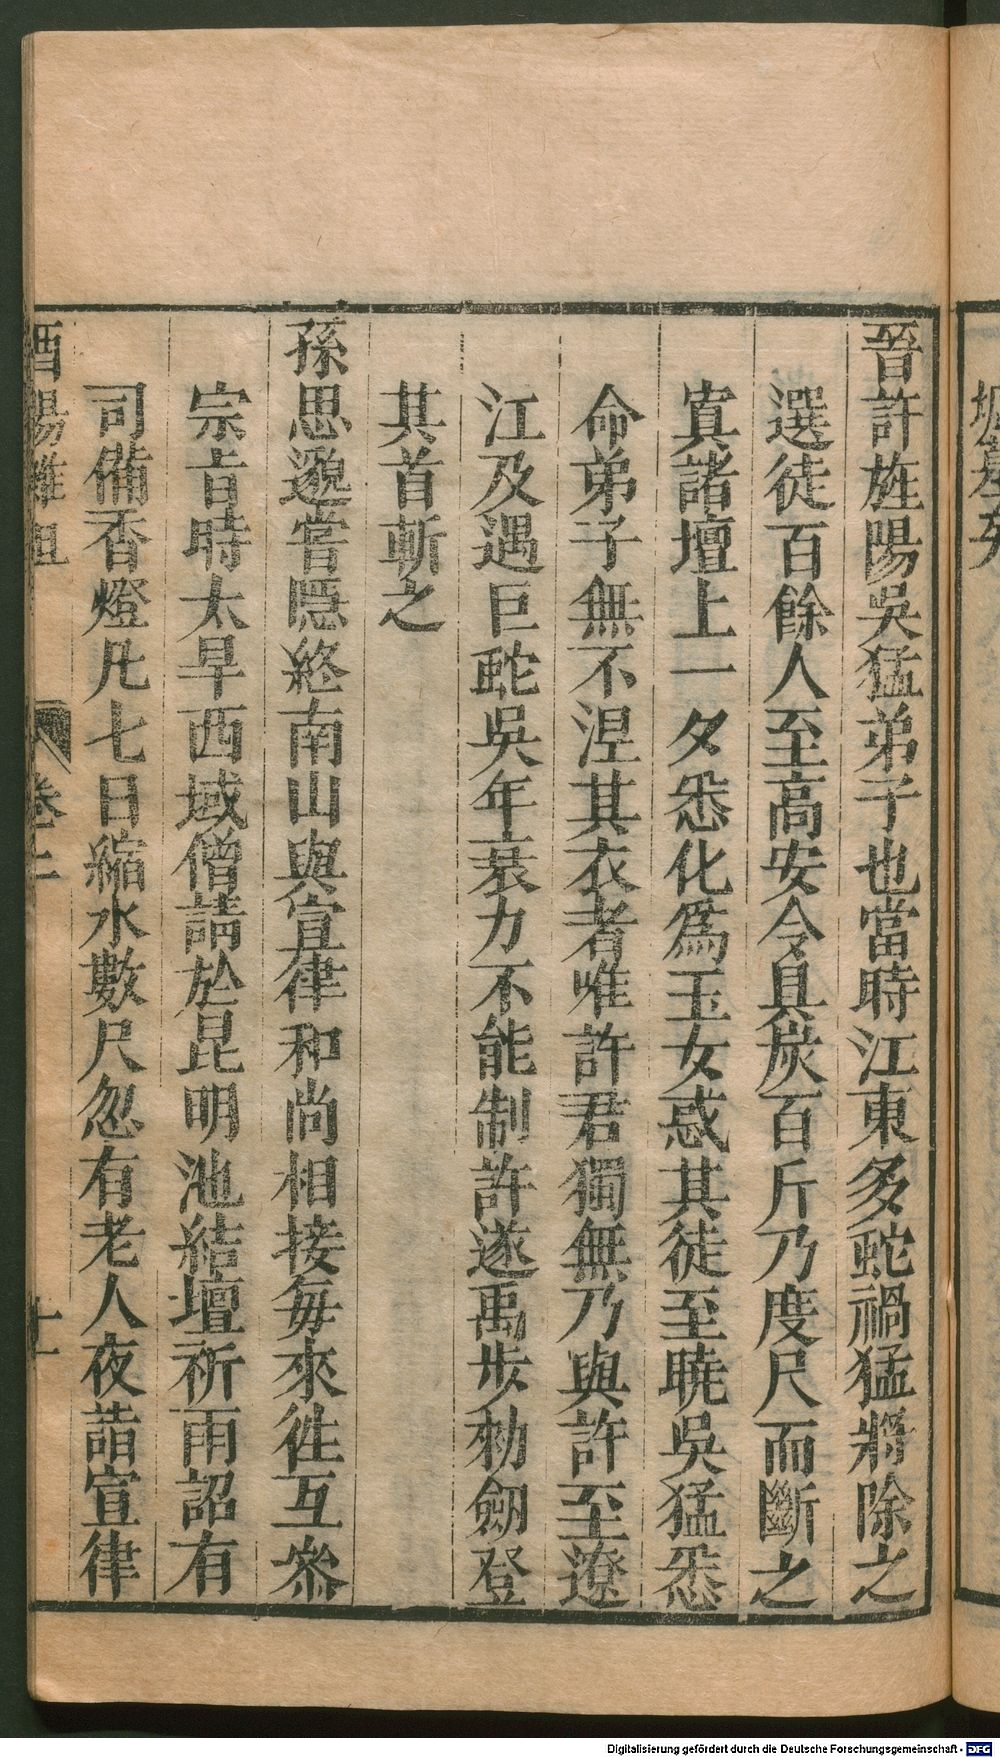 晉許旌陽吳猛弟子也當時江東多蛇禍猛將除之
選徒百餘人至高安令具炭百斤乃度尺而斷之
寘諸壇上一夕悉化爲玉女惑其徒至曉吳猛悉
命弟子無不涅其衣者唯許君獨無乃與許至遼
江及遇巨蛇吳年衰力不能制許遂禹步勑劒登
其首斬之
孫思邈嘗隱終南山與宣律和尚相接每來徃互叅
宗㫖時大旱西域僧請於昆明池結壇祈雨詔有
司備香燈凡七日縮水數尺忽有老人夜詣宣律
酉陽雜俎 卷二 十一
Digitalisierung gefördert durch die Deutsche Forschungsgemeinschaft - DFG